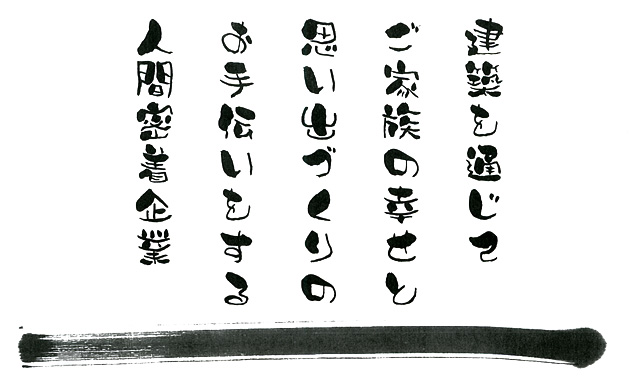 建築を通じて
ご家族の幸せと
思い出づくりの
お手伝いをする
人間密着企業